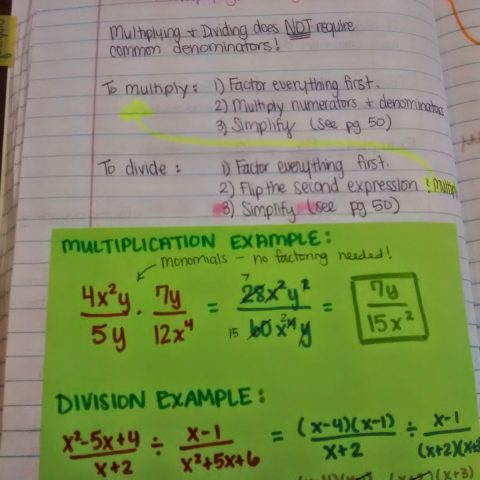 Multiplying + Dividing does NOT require
common denominators!
To multiply: 1) Factor everything first.
2) Multiply numerators + denominators
3) Simplify (see pg 50)
To divide: 1) Factor everything first.
2) Flip the second expression & multiply
3) Simplify (see pg 50)
MULTIPLICATION EXAMPLE:
monomials – no factoring needed!
4x²y/5y · 7y/12x⁴ = 7 28x²y²/15 60x²⁴y = 7y/15x²
DIVISION EXAMPLE:
x²-5x+4/x+2 ÷ x-1/x²+5x+6 = (x-4)(x-1)/x+2 ÷ x-1/(x+2)(x+3